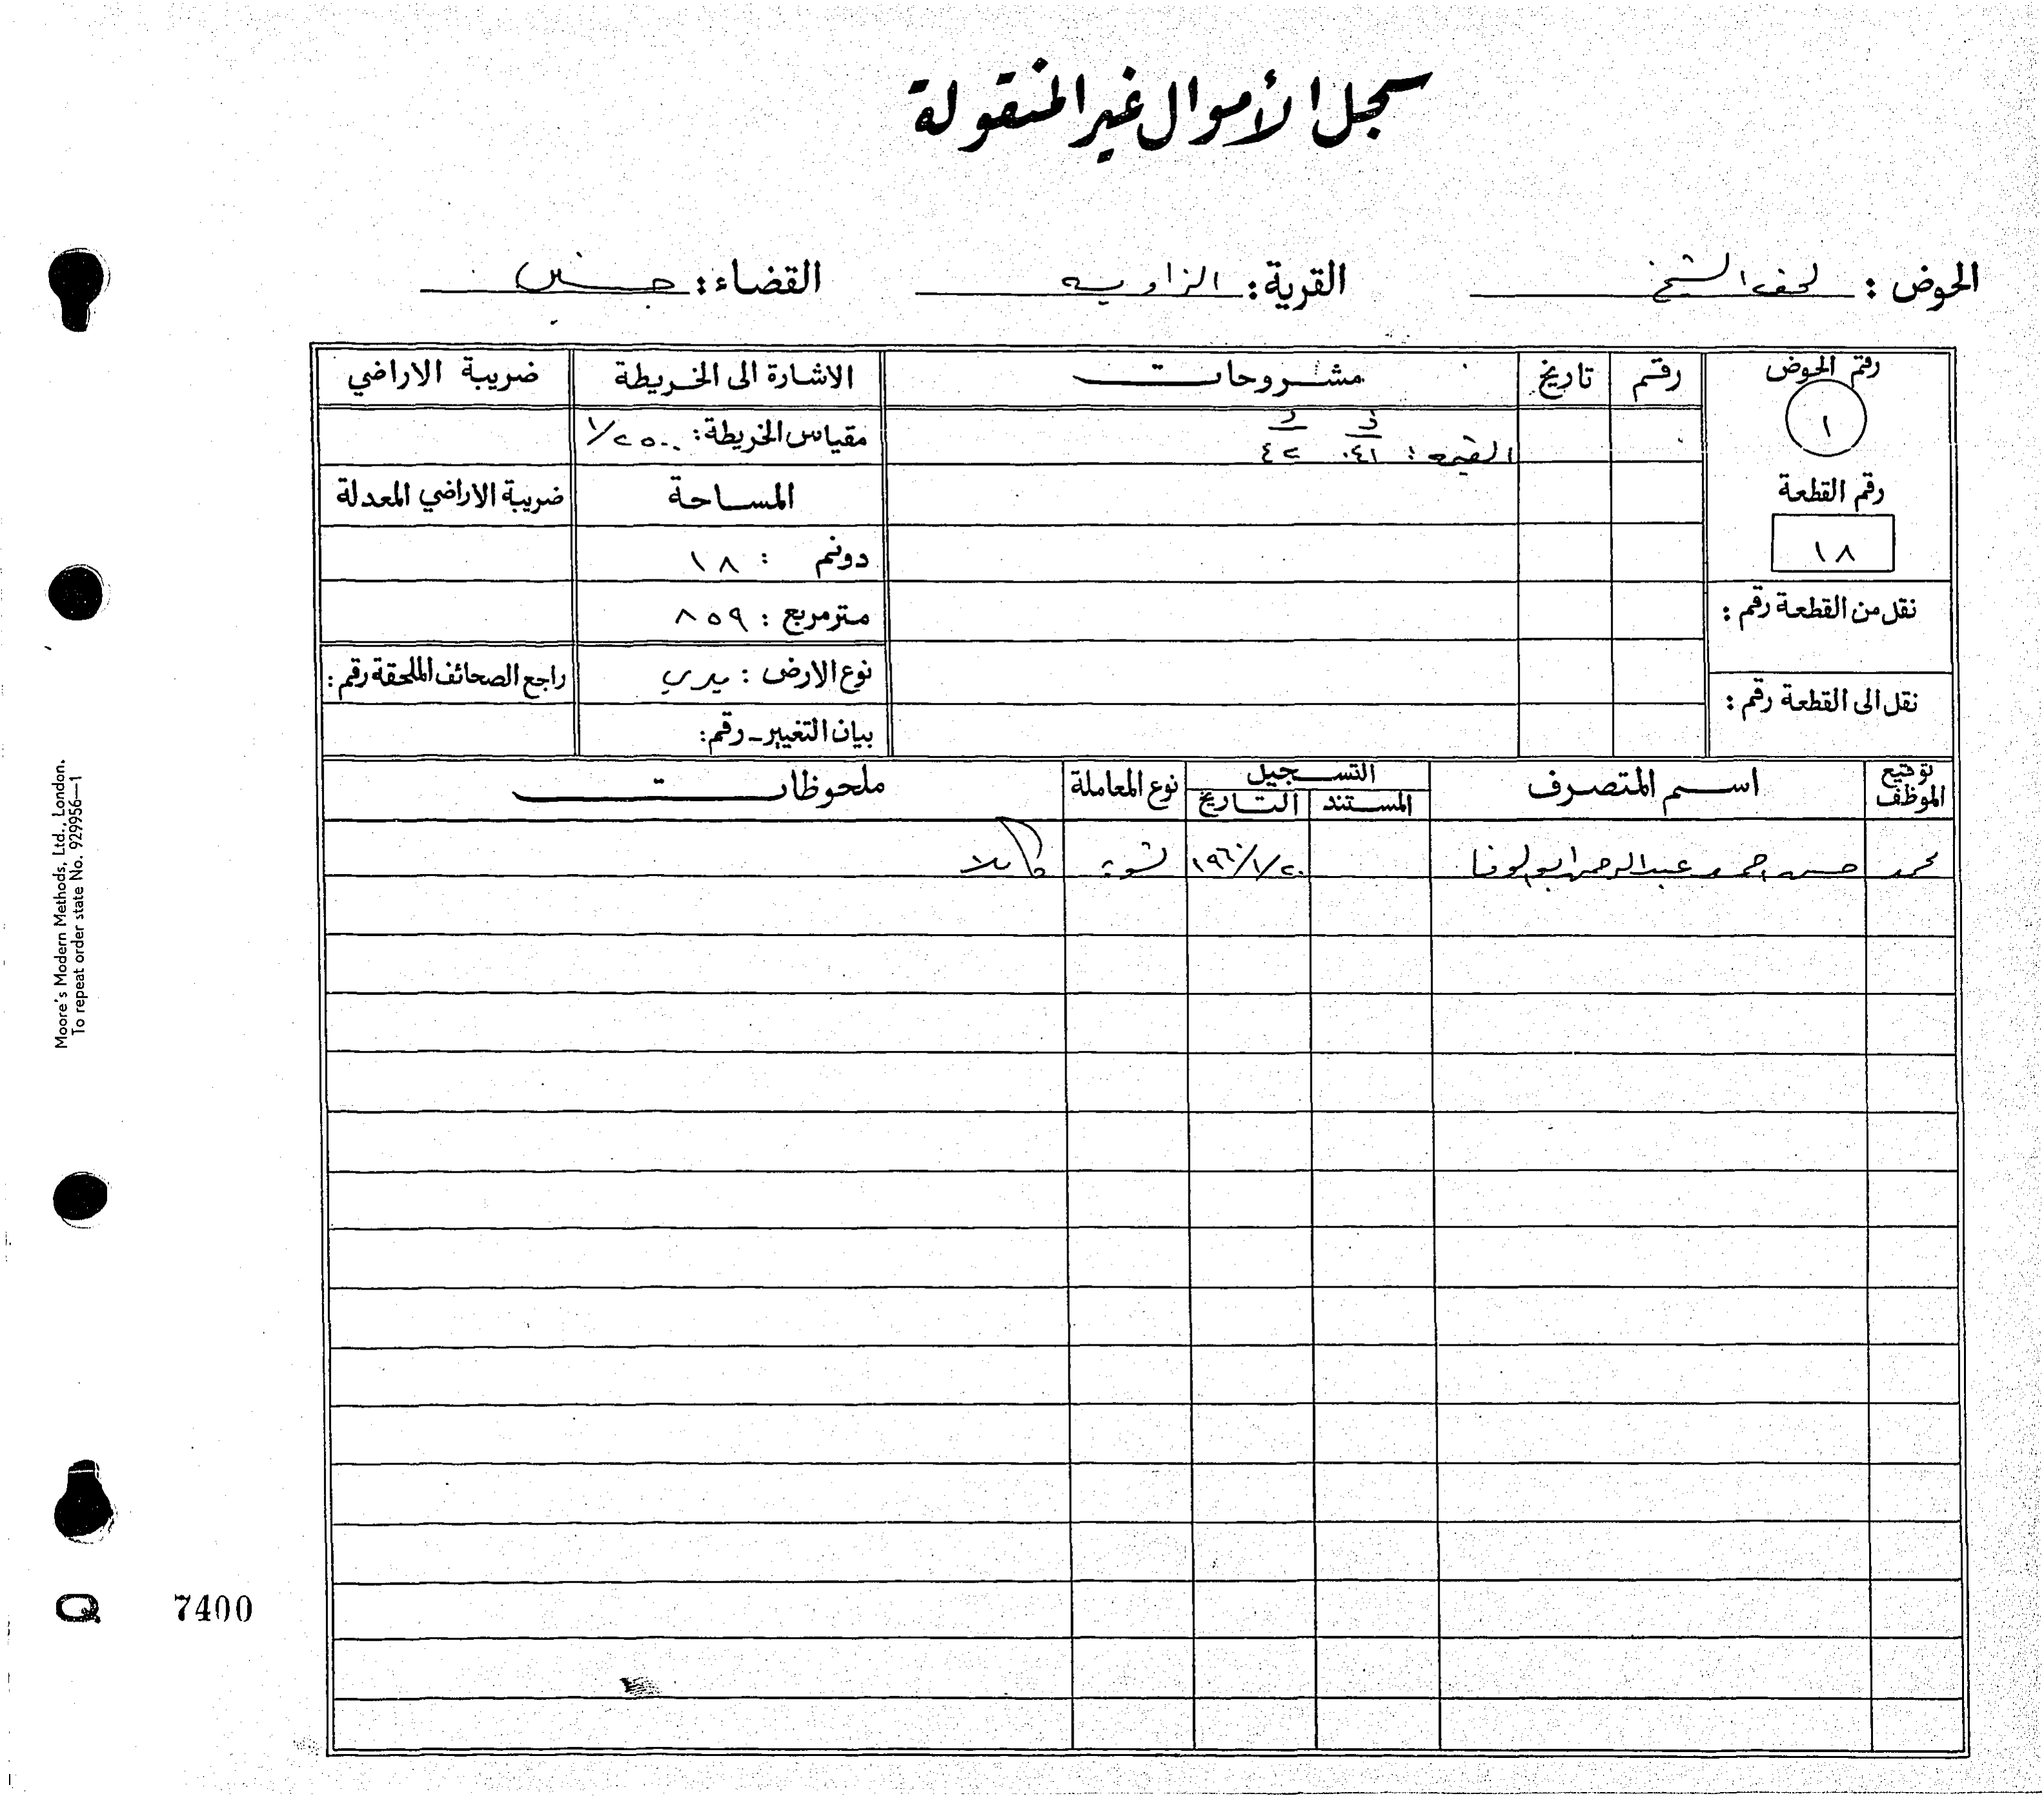 سجل الأموال غير المنقولة
الحوض : لحف الشيخ القرية : الزاويه القضاء : جنين
رقم الحوض رقم تاريخ مشروحات الاشارة الى الخريطة ضريبة الاراضي
١ القيمة : ٤١ ٤٢ مقياس الخريطة : ١/٢٥٠٠
رقم القطعة المساحة ضريبة الاراضي المعدلة
١٨ دونم : ١٨
نقل من القطعة رقم : متر مربع : ٨٥٩
نوع الارض : ميري راجع الصحائف الملحقة رقم :
نقل الى القطعة رقم :
بيان التغيير - رقم :
توقيع الموظف اسم المتصرف التسجيل نوع المعاملة ملحوظات
المستند التاريخ
محمد حسن احمد عبدالرحمن ابو الوفا ١٩٦٠/١/٢٠ تسوية كاملا
Moore's Modern Methods, Ltd., London.
To repeat order state No. 929956—1
Q 7400